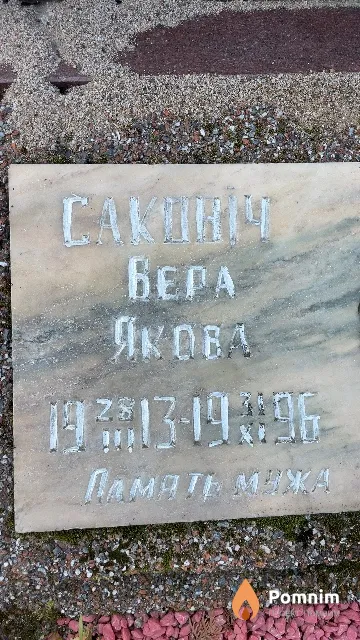 САКОНІЧ
ВЕРА
ЯКОВА
19 28/III 13-19 31/XI 96
ПАМЯТЬ МУЖА
Pomnim